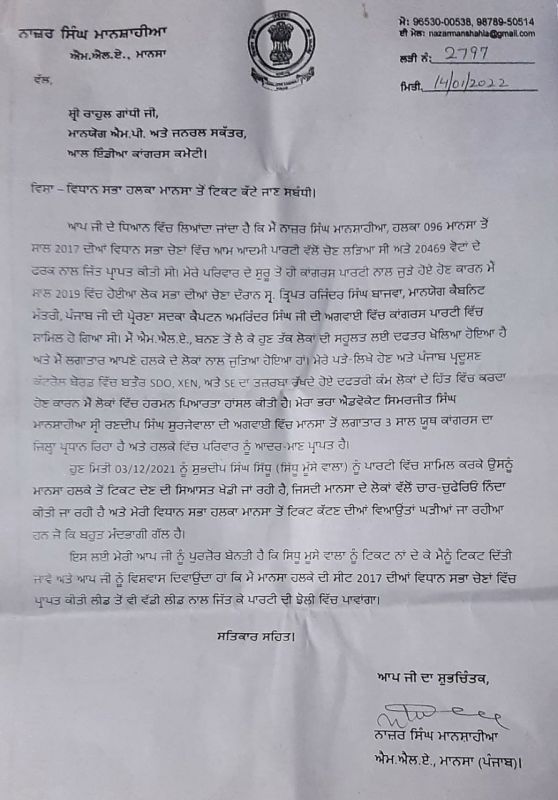 ਨਾਜ਼ਰ ਸਿੰਘ ਮਾਨਸ਼ਾਹੀਆ
ਐਮ.ਐਲ.ਏ., ਮਾਨਸਾ
ਮੋ: 96530-00538, 98789-50514
ਈ ਮੇਲ: nazarmanshahia@gmail.com
ਲੜੀ ਨੰ: 2797
ਮਿਤੀ. 14/01/2022
ਵੱਲ,
ਸ਼੍ਰੀ ਰਾਹੁਲ ਗਾਂਧੀ ਜੀ,
ਮਾਨਯੋਗ ਐਮ.ਪੀ. ਅਤੇ ਜਨਰਲ ਸਕੱਤਰ,
ਆਲ ਇੰਡੀਆ ਕਾਂਗਰਸ ਕਮੇਟੀ।
ਵਿਸ਼ਾ – ਵਿਧਾਨ ਸਭਾ ਹਲਕਾ ਮਾਨਸਾ ਤੋਂ ਟਿਕਟ ਕੱਟੇ ਜਾਣ ਸਬੰਧੀ।
ਆਪ ਜੀ ਦੇ ਧਿਆਨ ਵਿੱਚ ਲਿਆਂਦਾ ਜਾਂਦਾ ਹੈ ਕਿ ਮੈਂ ਨਾਜ਼ਰ ਸਿੰਘ ਮਾਨਸ਼ਾਹੀਆ, ਹਲਕਾ 096 ਮਾਨਸਾ ਤੋਂ
ਸਾਲ 2017 ਦੀਆਂ ਵਿਧਾਨ ਸਭਾ ਚੋਣਾਂ ਵਿੱਚ ਆਮ ਆਦਮੀ ਪਾਰਟੀ ਵੱਲੋਂ ਚੋਣ ਲੜਿਆ ਸੀ ਅਤੇ 20469 ਵੋਟਾਂ ਦੇ
ਫਰਕ ਨਾਲ ਜਿੱਤ ਪ੍ਰਾਪਤ ਕੀਤੀ ਸੀ। ਮੇਰੇ ਪਰਿਵਾਰ ਦੇ ਸ਼ੁਰੂ ਤੋਂ ਹੀ ਕਾਂਗਰਸ ਪਾਰਟੀ ਨਾਲ ਜੁੜੇ ਹੋਏ ਹੋਣ ਕਾਰਨ ਮੈਂ
ਸਾਲ 2019 ਵਿੱਚ ਹੋਈਆ ਲੋਕ ਸਭਾ ਦੀਆਂ ਚੋਣਾ ਦੌਰਾਨ ਸ੍ਰ. ਤ੍ਰਿਪਤ ਰਜਿੰਦਰ ਸਿੰਘ ਬਾਜਵਾ, ਮਾਨਯੋਗ ਕੈਬਨਿਟ
ਮੰਤਰੀ, ਪੰਜਾਬ ਜੀ ਦੀ ਪ੍ਰੇਰਣਾ ਸਦਕਾ ਕੈਪਟਨ ਅਮਰਿੰਦਰ ਸਿੰਘ ਜੀ ਦੀ ਅਗਵਾਈ ਵਿੱਚ ਕਾਂਗਰਸ ਪਾਰਟੀ ਵਿੱਚ
ਸ਼ਾਮਿਲ ਹੋ ਗਿਆ ਸੀ। ਮੈਂ ਐਮ.ਐਲ.ਏ., ਬਨਣ ਤੋਂ ਲੈ ਕੇ ਹੁਣ ਤੱਕ ਲੋਕਾਂ ਦੀ ਸਹੂਲਤ ਲਈ ਦਫਤਰ ਖੋਲਿਆ ਹੋਇਆ ਹੈ
ਅਤੇ ਮੈਂ ਲਗਾਤਾਰ ਆਪਣੇ ਹਲਕੇ ਦੇ ਲੋਕਾਂ ਨਾਲ ਜੁੜਿਆ ਹੋਇਆ ਹਾਂ। ਮੇਰੇ ਪੜੇ-ਲਿਖੇ ਹੋਣ ਅਤੇ ਪੰਜਾਬ ਪ੍ਰਦੂਸ਼ਣ
ਕੰਟਰੋਲ ਬੋਰਡ ਵਿੱਚ ਬਤੌਰ SDO, XEN, ਅਤੇ SE ਦਾ ਤਜ਼ਰਬਾ ਰੱਖਦੇ ਹੋਏ ਦਫਤਰੀ ਕੰਮ ਲੋਕਾਂ ਦੇ ਹਿੱਤ ਵਿੱਚ ਕਰਦਾ
ਹੋਣ ਕਾਰਨ ਮੈਂ ਲੋਕਾਂ ਵਿੱਚ ਹਰਮਨ ਪਿਆਰਤਾ ਹਾਂਸਲ ਕੀਤੀ ਹੈ। ਮੇਰਾ ਭਰਾ ਐਡਵੋਕੇਟ ਸਿਮਰਜੀਤ ਸਿੰਘ
ਮਾਨਸ਼ਾਹੀਆ ਸ਼੍ਰੀ ਰਣਦੀਪ ਸਿੰਘ ਸੁਰਜੇਵਾਲਾ ਦੀ ਅਗਵਾਈ ਵਿੱਚ ਮਾਨਸਾ ਤੋਂ ਲਗਾਤਾਰ 3 ਸਾਲ ਯੂਥ ਕਾਂਗਰਸ ਦਾ
ਜਿਲ੍ਹਾ ਪ੍ਰਧਾਨ ਰਿਹਾ ਹੈ ਅਤੇ ਹਲਕੇ ਵਿੱਚ ਪਰਿਵਾਰ ਨੂੰ ਆਦਰ-ਮਾਣ ਪ੍ਰਾਪਤ ਹੈ।
ਹੁਣ ਮਿਤੀ 03/12/2021 ਨੂੰ ਸ਼ੁਭਦੀਪ ਸਿੰਘ ਸਿੱਧੂ (ਸਿੱਧੂ ਮੂਸੇ ਵਾਲਾ) ਨੂੰ ਪਾਰਟੀ ਵਿੱਚ ਸ਼ਾਮਿਲ ਕਰਕੇ ਉਸਨੂੰ
ਮਾਨਸਾ ਹਲਕੇ ਤੋਂ ਟਿਕਟ ਦੇਣ ਦੀ ਸਿਆਸਤ ਖੇਡੀ ਜਾ ਰਹੀ ਹੈ, ਜਿਸਦੀ ਮਾਨਸਾ ਦੇ ਲੋਕਾਂ ਵੱਲੋਂ ਚਾਰ-ਚੁਫੇਰਿਓ ਨਿੰਦਾ
ਕੀਤੀ ਜਾ ਰਹੀ ਹੈ ਅਤੇ ਮੇਰੀ ਵਿਧਾਨ ਸਭਾ ਹਲਕਾ ਮਾਨਸਾ ਤੋਂ ਟਿਕਟ ਕੱਟਣ ਦੀਆਂ ਵਿਆਉਂਤਾਂ ਘੜੀਆਂ ਜਾ ਰਹੀਆ
ਹਨ ਜੋ ਕਿ ਬਹੁਤ ਮੰਦਭਾਗੀ ਗੱਲ ਹੈ।
ਇਸ ਲਈ ਮੇਰੀ ਆਪ ਜੀ ਨੂੰ ਪੁਰਜ਼ੋਰ ਬੇਨਤੀ ਹੈ ਕਿ ਸਿਧੂ ਮੂਸੇ ਵਾਲਾ ਨੂੰ ਟਿਕਟ ਨਾਂ ਦੇ ਕੇ ਮੈਨੂੰ ਟਿਕਟ ਦਿੱਤੀ
ਜਾਵੇ ਅਤੇ ਆਪ ਜੀ ਨੂੰ ਵਿਸ਼ਵਾਸ ਦਿਵਾਉਂਦਾ ਹਾਂ ਕਿ ਮੈਂ ਮਾਨਸਾ ਹਲਕੇ ਦੀ ਸੀਟ 2017 ਦੀਆਂ ਵਿਧਾਨ ਸਭਾ ਚੋਣਾਂ ਵਿੱਚ
ਪ੍ਰਾਪਤ ਕੀਤੀ ਲੀਡ ਤੋਂ ਵੀ ਵੱਡੀ ਲੀਡ ਨਾਲ ਜਿੱਤ ਕੇ ਪਾਰਟੀ ਦੀ ਝੋਲੀ ਵਿੱਚ ਪਾਵਾਂਗਾ।
ਸਤਿਕਾਰ ਸਹਿਤ।
ਆਪ ਜੀ ਦਾ ਸ਼ੁਭਚਿੰਤਕ,
ਨਾਜ਼ਰ ਸਿੰਘ ਮਾਨਸ਼ਾਹੀਆ
ਐਮ.ਐਲ.ਏ., ਮਾਨਸਾ (ਪੰਜਾਬ)।